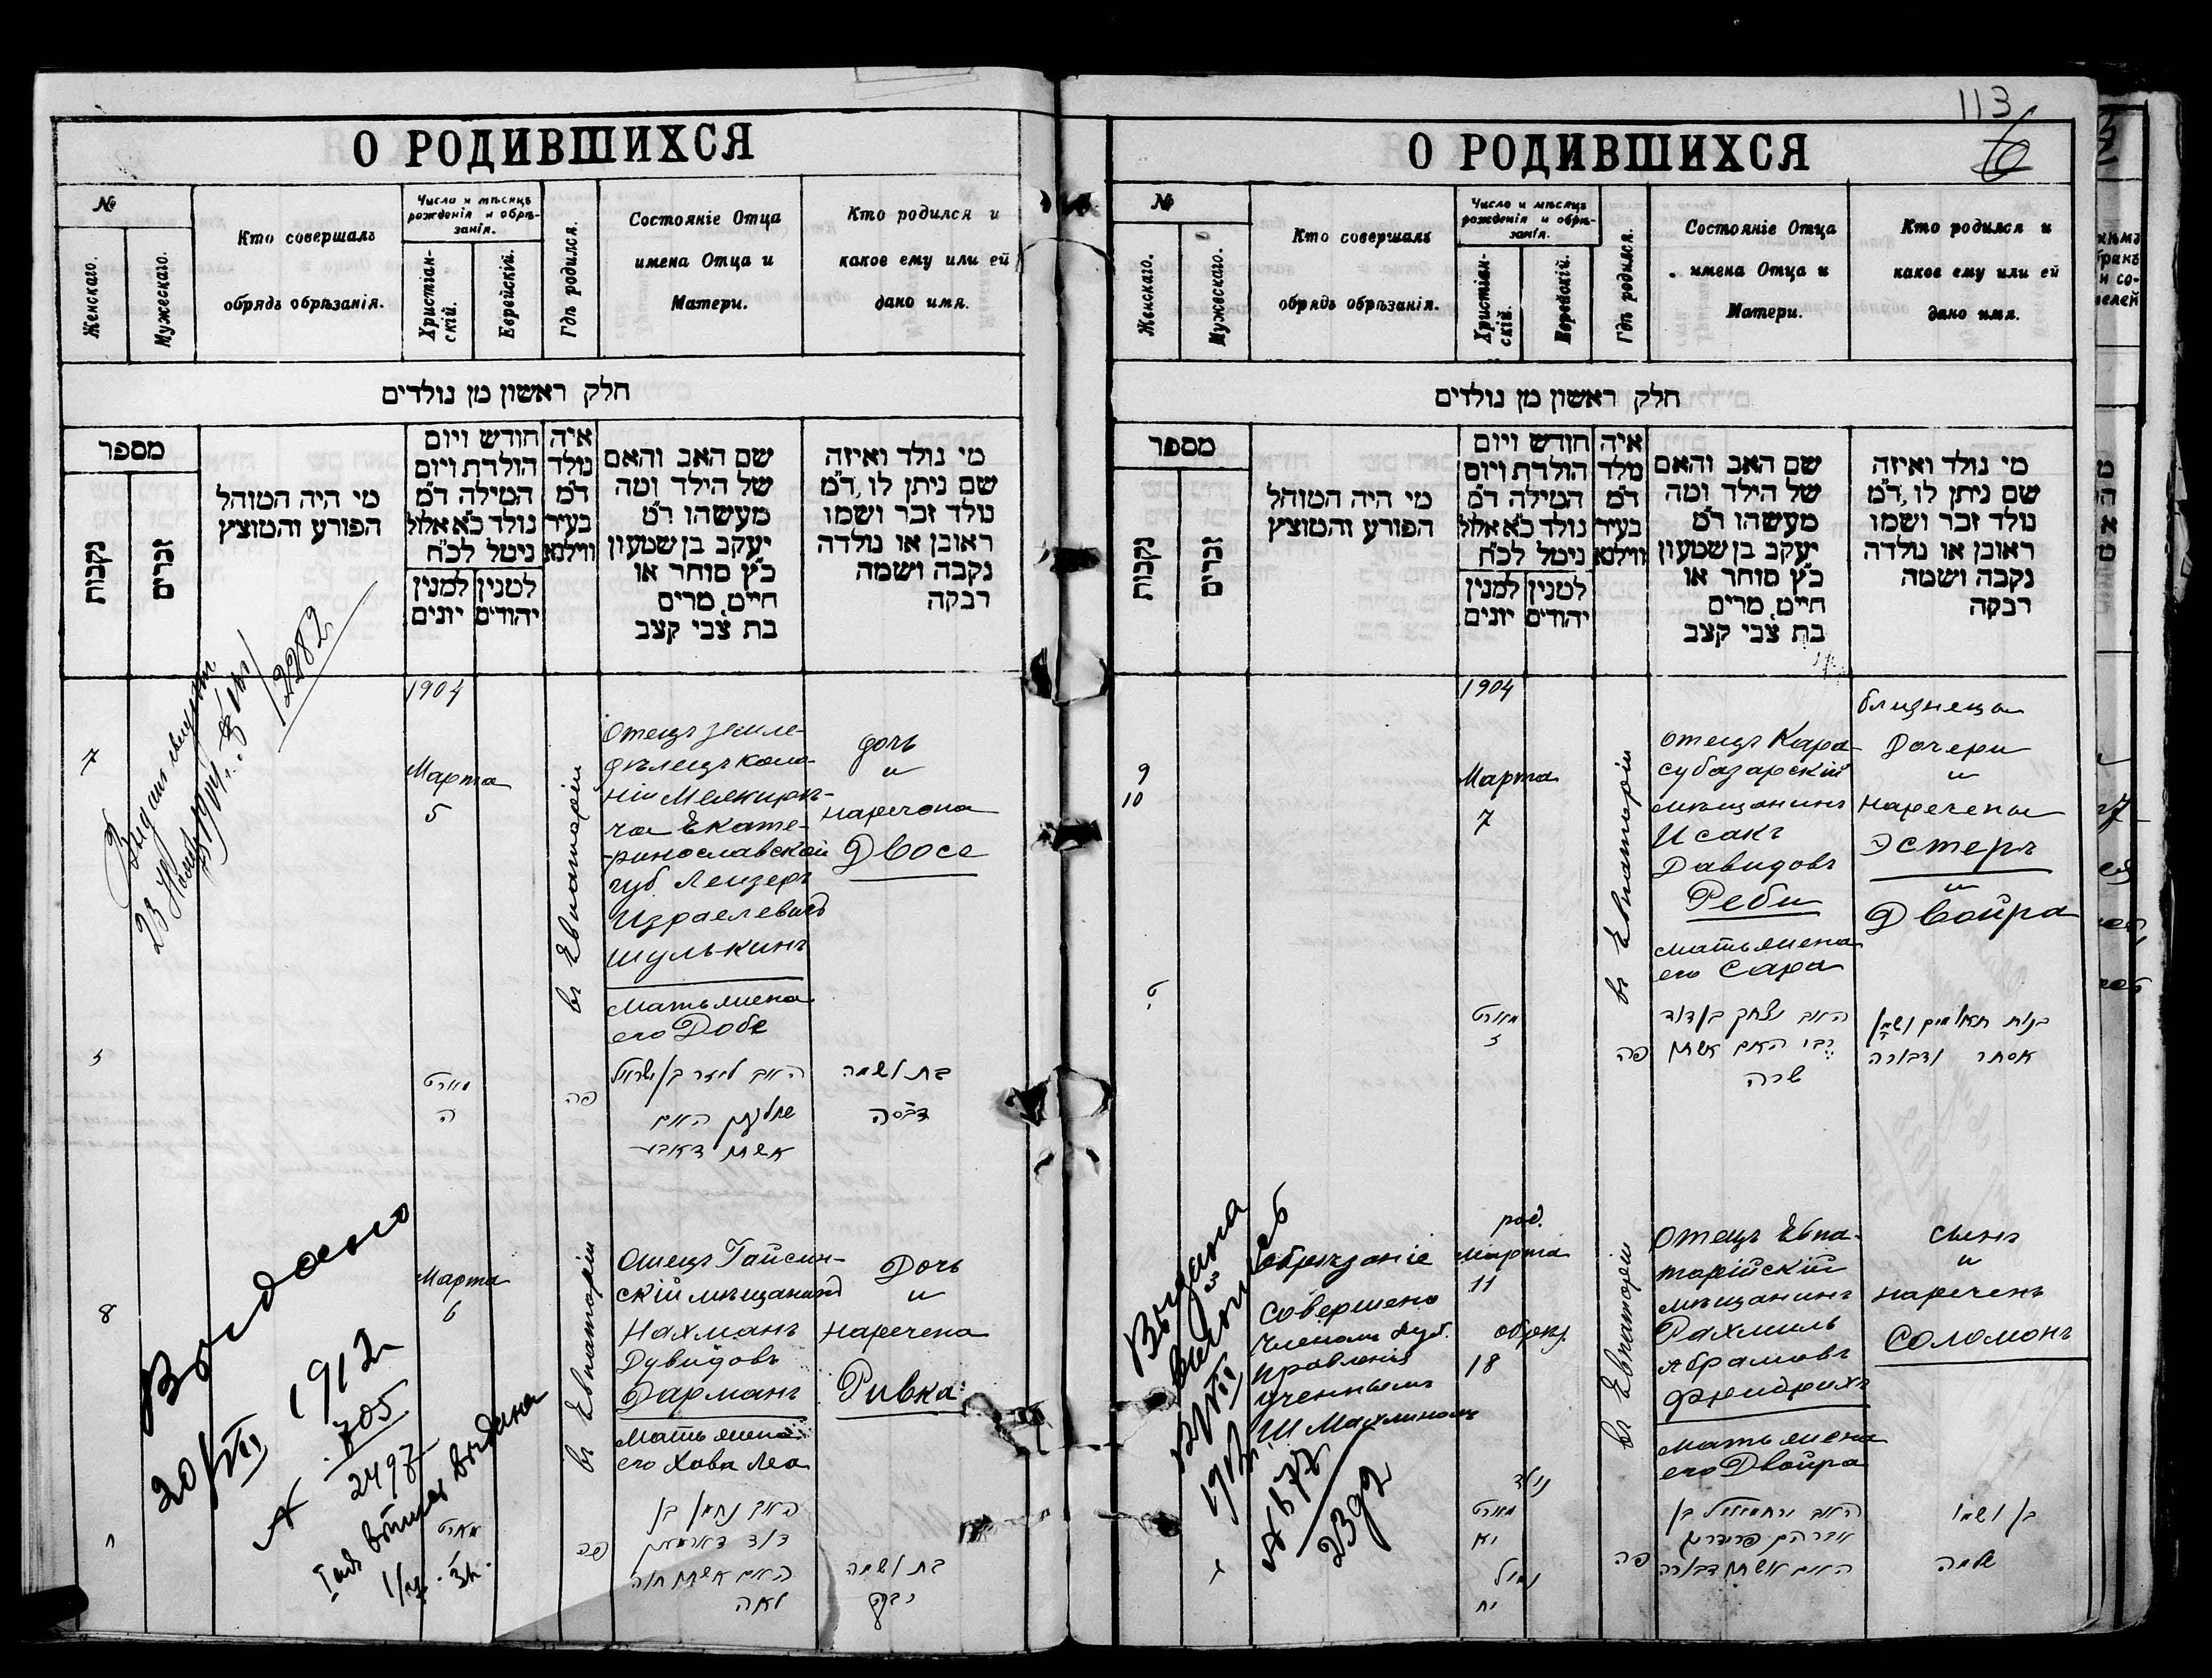 О РОДИВШИХСЯ
№
Женскаго.
Мужескаго.
Кто совершалъ
обрядъ обрѣзанія.
Число и мѣсяцъ
рожденія и обрѣ-
занія.
Христіан-
скій.
Еврейскій.
Гдѣ родился.
Состояніе Отца
имена Отца и
Матери.
Кто родился и
какое ему или ей
дано имя.
חלק ראשון מן נולדים
מספר
נקבות
זכרים
מי היה המוהל
הפורע והמוצץ
חודש ויום
הולדת ויום
המילה ד״מ
נולד כ״א אלול
ניטל לכ״ח
למנין יונים
למנין יהודים
איה
נולד
ד״מ
בעיר
ווילנא
שם האב והאם
של הילד ומה
מעשהו ד״מ
יעקב בן שמעון
כ״ץ סוחר או
חייט, מרים
בת צבי קצב
מי נולד ואיזה
שם ניתן לו, ד״מ
נולד זכר ושמו
ראובן או נולדה
נקבה ושמה
רבקה
2282
1904
7
Марта
5
въ Евпаторіи
Отецъ земле-
дѣлецъ коло-
ніи
Екате-
ринославской
губ Лейзеръ
Израелевъ
Шулькинъ
мать жена
его Добе
дочь
и
наречена
Двосе
ז
מארט
ה
פה
האב ליזר בן ישראל
שולקין האם
אשתו דאבע
בת ושמה
דבוסה
Выдано
20/VII 1912
№ 705
2497
выдана
8
Марта
6
въ Евпаторіи
Отецъ Гайсин-
скій мѣщанинъ
Нахманъ
Дувидовъ
Фарманъ
мать жена
его Хава Леа
Дочь
и
наречена
Ривка
ח
מארט
פה
האב נחמן בן
דוד
האם אשתו חוה
לאה
בת ושמה
רבקה
113
6
О РОДИВШИХСЯ
№
Женскаго.
Мужескаго.
Кто совершалъ
обрядъ обрѣзанія.
Число и мѣсяцъ
рожденія и обрѣ-
занія.
Христіан-
скій.
Еврейскій.
Гдѣ родился.
Состояніе Отца
имена Отца и
Матери.
Кто родился и
какое ему или ей
дано имя.
חלק ראשון מן נולדים
מספר
נקבות
זכרים
מי היה המוהל
הפורע והמוצץ
חודש ויום
הולדת ויום
המילה ד״מ
נולד כ״א אלול
ניטל לכ״ח
למנין יונים
למנין יהודים
איה
מלד
ד״מ
בעיר
ווילנא
שם האב והאם
של הילד ומה
מעשהו ד״מ
יעקב בן שמעון
כ״ץ סוחר או
חייט, מרים
בת צבי קצב
מי נולד ואיזה
שם ניתן לו, ד״מ
נולד זכר ושמו
ראובן או נולדה
נקבה ושמה
רבקה
1904
9
10
Марта
7
въ Евпаторіи
отецъ Кара-
субазарскій
мѣщанинъ
Исакъ
Давидовъ
Реби
мать жена
его Сара
близнецы
Дочери
и
наречены
Эстеръ
и
Двойра
ט
י
מארט
ז
פה
האב יצחק בן דוד
רבי האם אשתו
שרה
בנות תאומים ושמן
אסתר ודבורה
Выдана
1912
№ 677
2392
обрѣзаніе
совершено
членомъ дух.
правленія
ученымъ
Ш Махлиномъ
род.
Марта
11
обрѣз.
18
въ Евпаторіи
Отецъ Евпа-
торійскій
мѣщанинъ
Рахмиль
Абрамовъ
Фридрихъ
мать жена
его Двойра
сынъ
и
нареченъ
Соломонъ
נולד
מארט
יא
נימול
יח
פה
האב ירחמיאל בן
אברהם פרידריך
האם אשתו דבורה
בן ושמו
שלמה